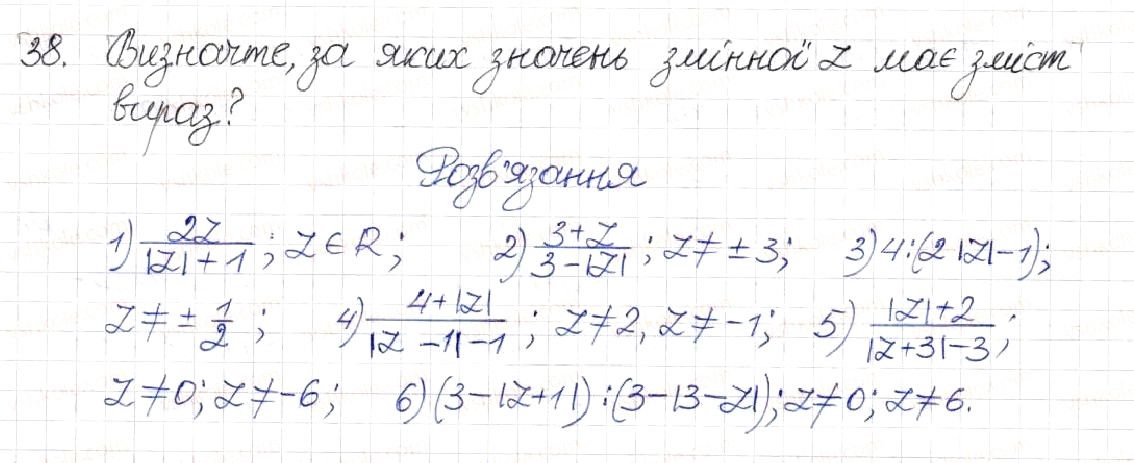 38. Визначте, за яких значень змінної z має зміст
вираз?
Розв'язання
1) 2z/(|z|+1); z ∈ R; 2) (3+z)/(3-|z|); z ≠ ±3; 3) 4:(2|z|-1);
z ≠ ± 1/2; 4) (4+|z|)/(|z-1|-1); z ≠ 2, z ≠ -1; 5) (|z|+2)/(|z+3|-3);
z ≠ 0; z ≠ -6; 6) (3-|z+1|):(3-|3-z|); z ≠ 0; z ≠ 6.